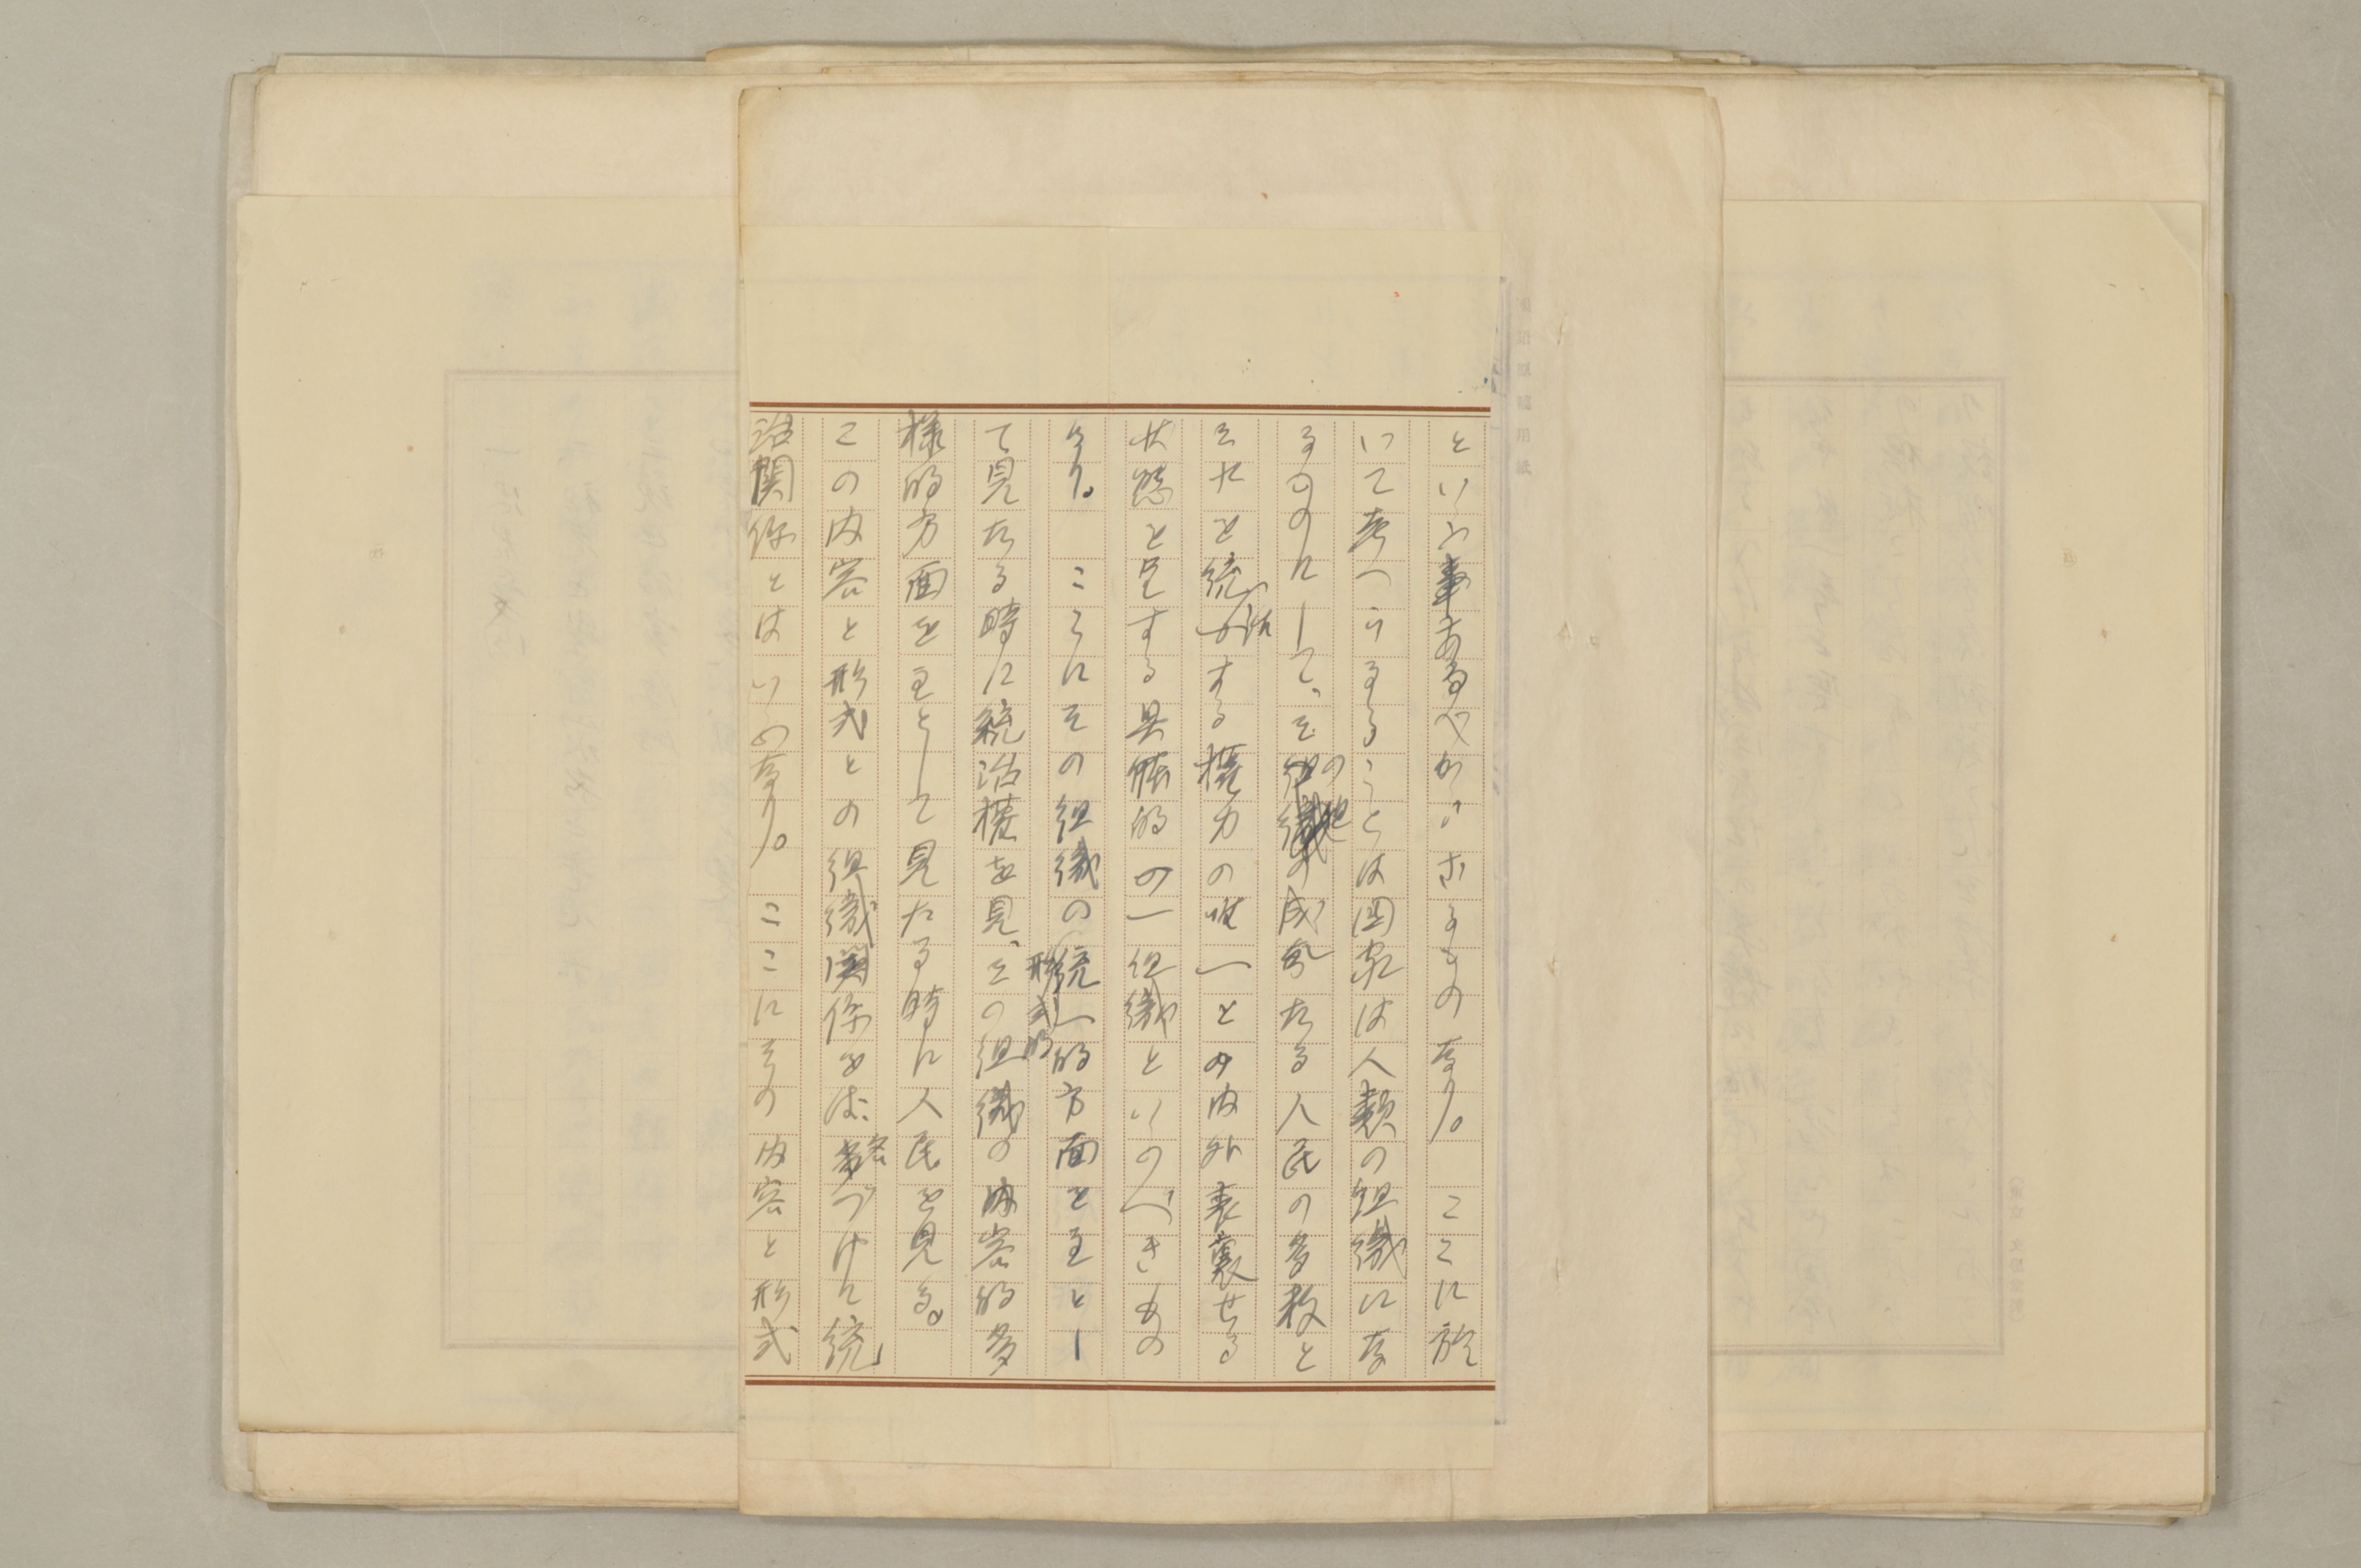 といふ事あるべからざるものなり。ここに於
いて考へらるることは国家は人類の組織にな
るものにして、その組織の成分たる人民の多数と
それを統治する権力の唯一との内外表裏せる
状態を呈する具体的の一組織といふべきもの
なり。ここにその組織の形式的方面を主とし
て見たる時に統治権を見、その組織の内容的多
様的方面を主として見たる時に人民を見る。
この内容と形式との組織関係をば名づけて統
治関係とはいふなり。ここにその内容と形式